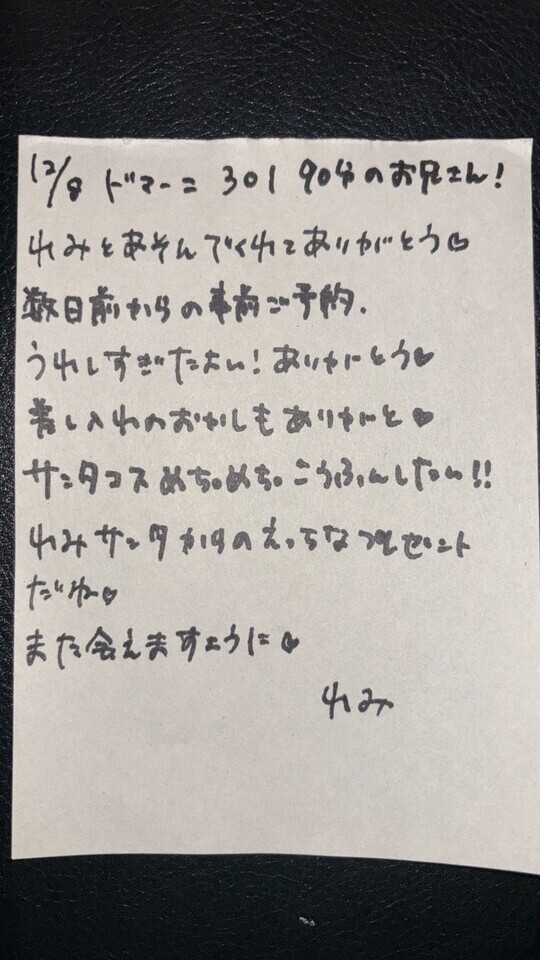 12/8 ドマーニ 301 90分のお兄さん!
れみとあそんでくれてありがとう♡
数日前からの事前ご予約.
うれしすぎたよい! ありがとう♥
差し入れのおかしもありがと♥
サンタコスめちゃめちゃこうふんしたぃ!!
れみサンタからのえっちなプレゼント
だね♡
また会えますように♥
れみ